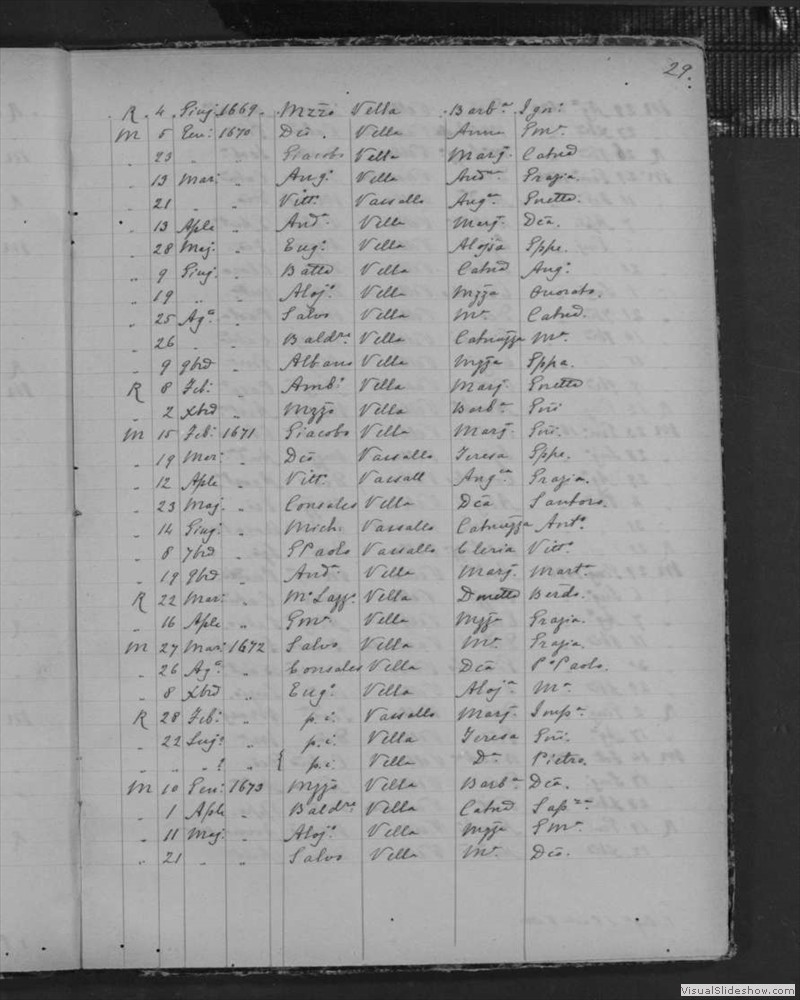 29.
R . 4 . Giug: 1669 . Mzzo Vella . Barb^a Ign:
M 5 Gen: 1670 Dco . Vella Anna Gm^e.
„ 23 „ „ Giacobo Vella Marj. Catnd
„ 19 Mar: „ Aug^o Vella And^na Grazia.
„ 21 „ „ Vitt: Vassallo Aug^a Gnetto.
„ 13 Aple „ And: Vella Marj. Dca.
„ 28 Maj. „ Eug: Vella Alojsa Gppe.
„ 9 Giug: „ Batta Vella Catnd Aug^o
„ 19 „ „ Aloj^o Vella Mzza Onorato.
„ 25 Ag^o „ Salvo Vella M^a Catnd.
„ 26 „ „ Bald^re Vella Catnuzza M^a
„ 9 9brd „ Albano Vella Mzza Gppa.
R 8 Feb: „ Amb: Vella Marj. Gnetto
„ 2 Xbrd „ Mzzo Vella Barb^a Gio
M 15 Feb: 1671 Giacobo Vella Marj. Gio.
„ 19 Mar: „ Dco Vassallo Teresa Gppe.
„ 12 Aple „ Vitt: Vassall Ang^ca Grazia.
„ 23 Maj. „ Consales Vella Dca Santoro.
„ 14 Giug: „ Mich: Vassallo Catnuzza Ant^o
„ 8 7brd „ GPaolo Vassallo Cleria Vitt^o
„ 19 9brd „ And: Vella Marj. Mart:
R 22 Mar: „ M^o Lazz^o Vella Dnetta Berdo.
„ 16 Aple „ Gm^o Vella Mzza Grazia.
M 27 Mar: 1672 Salvo Vella M^a Grazia.
„ 26 Ag^o „ Consales Vella Dca P^o Paolo.
„ 8 Xbrd „ Eug: Vella Aloj^a M^a
R 28 Feb: „ p.i. Vassallo Marj. Imp^a
„ 22 Lug: „ p.i. Vella Teresa Gio:
„ „ „ ? „ { p.i. Vella D^a Pietro.
M 10 Gen: 1673 Mzzo Vella Barb^a Dca.
„ 1 Aple „ Bald^re Vella Catnd
„ 11 Maj. „ Aloj^o Vella Mzza Gm^e.
„ 21 „ „ Salvo Vella M^a Dco.
VisualSlideshow.com